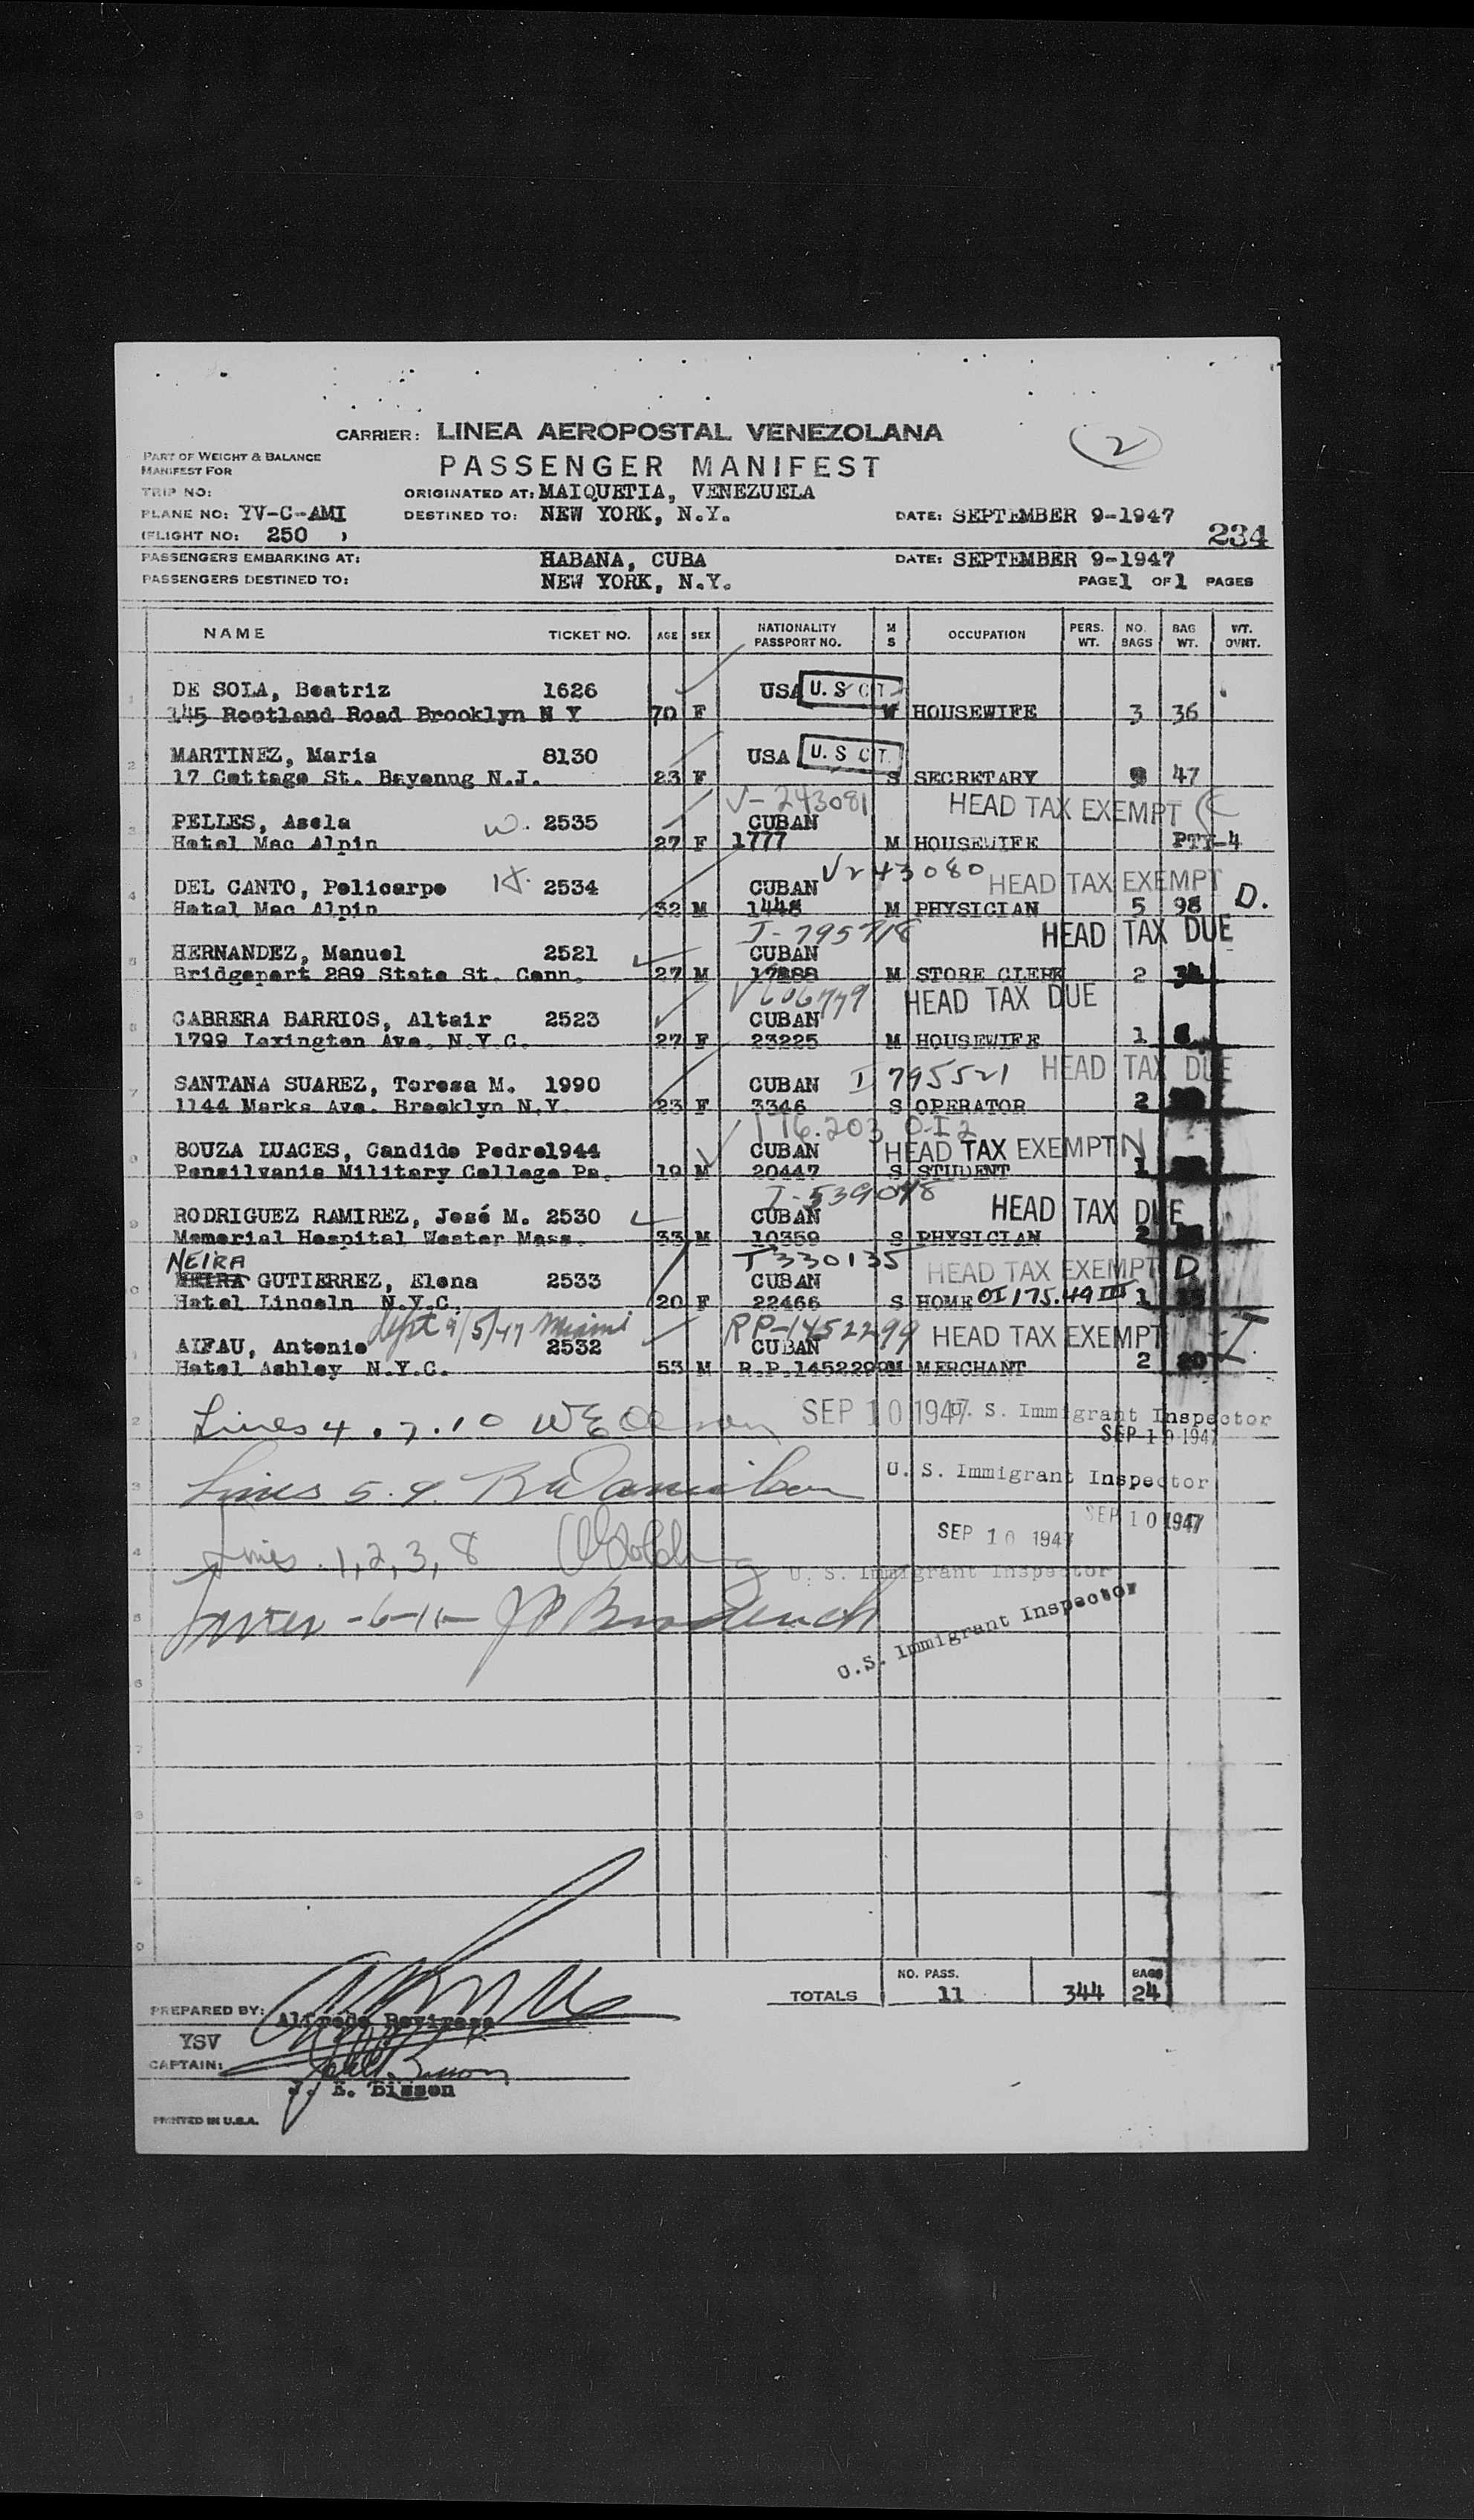 CARRIER: LINEA AEROPOSTAL VENEZOLANA
2
PART OF WEIGHT & BALANCE
MANIFEST FOR
PASSENGER MANIFEST
TRIP NO:
ORIGINATED AT: MAIQUETIA, VENEZUELA
PLANE NO: YV-C-AMI
DESTINED TO: NEW YORK, N.Y.
DATE: SEPTEMBER 9-1947
(FLIGHT NO: 250 )
234
PASSENGERS EMBARKING AT: HABANA, CUBA
DATE: SEPTEMBER 9-1947
PASSENGERS DESTINED TO: NEW YORK, N.Y.
PAGE 1 OF 1 PAGES
NAME TICKET NO. AGE SEX NATIONALITY PASSPORT NO. M S OCCUPATION PERS. WT. NO. BAGS BAG WT. WT. OVNT.
DE SOLA, Beatriz 1626 USA U. S C T.
145 Rootland Road Brooklyn N Y 70 F W HOUSEWIFE 3 36
MARTINEZ, Maria 8130 USA U. S C T.
17 Cottage St. Bayonng N.J. 23 F S SECRETARY 47
V-243081 HEAD TAX EXEMPT
PELLES, Asela W. 2535 CUBAN
Hotel Mac Alpin 27 F 1777 M HOUSEWIFE PTY-4
V243080 HEAD TAX EXEMPT
DEL CANTO, Policarpo 2534 CUBAN
Hotel Mac Alpin 32 M 1448 M PHYSICIAN 5 98 D.
I-795718 HEAD TAX DUE
HERNANDEZ, Manuel 2521 CUBAN
Bridgeport 289 State St. Conn. 27 M M STORE CLERK 2
V606779 HEAD TAX DUE
CABRERA BARRIOS, Altair 2523 CUBAN
1799 Lexington Ave. N.Y.C. 27 F 23225 M HOUSEWIFE 1
I 795521 HEAD TAX DUE
SANTANA SUAREZ, Teresa M. 1990 CUBAN
1144 Marks Ave. Brooklyn N.Y. 23 F 3346 S OPERATOR 2
176.203 O-I 2
BOUZA LUACES, Candido Pedro 1944 CUBAN HEAD TAX EXEMPT N
Pensilvania Military College Pa. 19 M 20447 S STUDENT 1
I-539078 HEAD TAX DUE
RODRIGUEZ RAMIREZ, José M. 2530 CUBAN
Memorial Hospital Wester Mass. 33 M 10359 S PHYSICIAN 2
NEIRA T330135 HEAD TAX EXEMPT D
GUTIERREZ, Elena 2533 CUBAN
Hotel Lincoln N.Y.C. 20 F 22466 S HOME OI 175.49 III 1
dept 9/5/47 Miami RP-1452299 HEAD TAX EXEMPT I
ALFAU, Antonio 2532 CUBAN
Hotel Ashley N.Y.C. 53 M R.P.1452299 M MERCHANT 2 20
Lines 4.7.10 SEP 10 1947 U. S. Immigrant Inspector
SEP 10 1947
Lines 5.9. U. S. Immigrant Inspector
SEP 10 1947
Lines 1,2,3,8 SEP 10 1947
U. S. Immigrant Inspector
-6-11-
U.S. Immigrant Inspector
TOTALS NO. PASS. 11 344 BAGS 24
PREPARED BY:
YSV
CAPTAIN:
J. E. Bisson
PRINTED IN U.S.A.